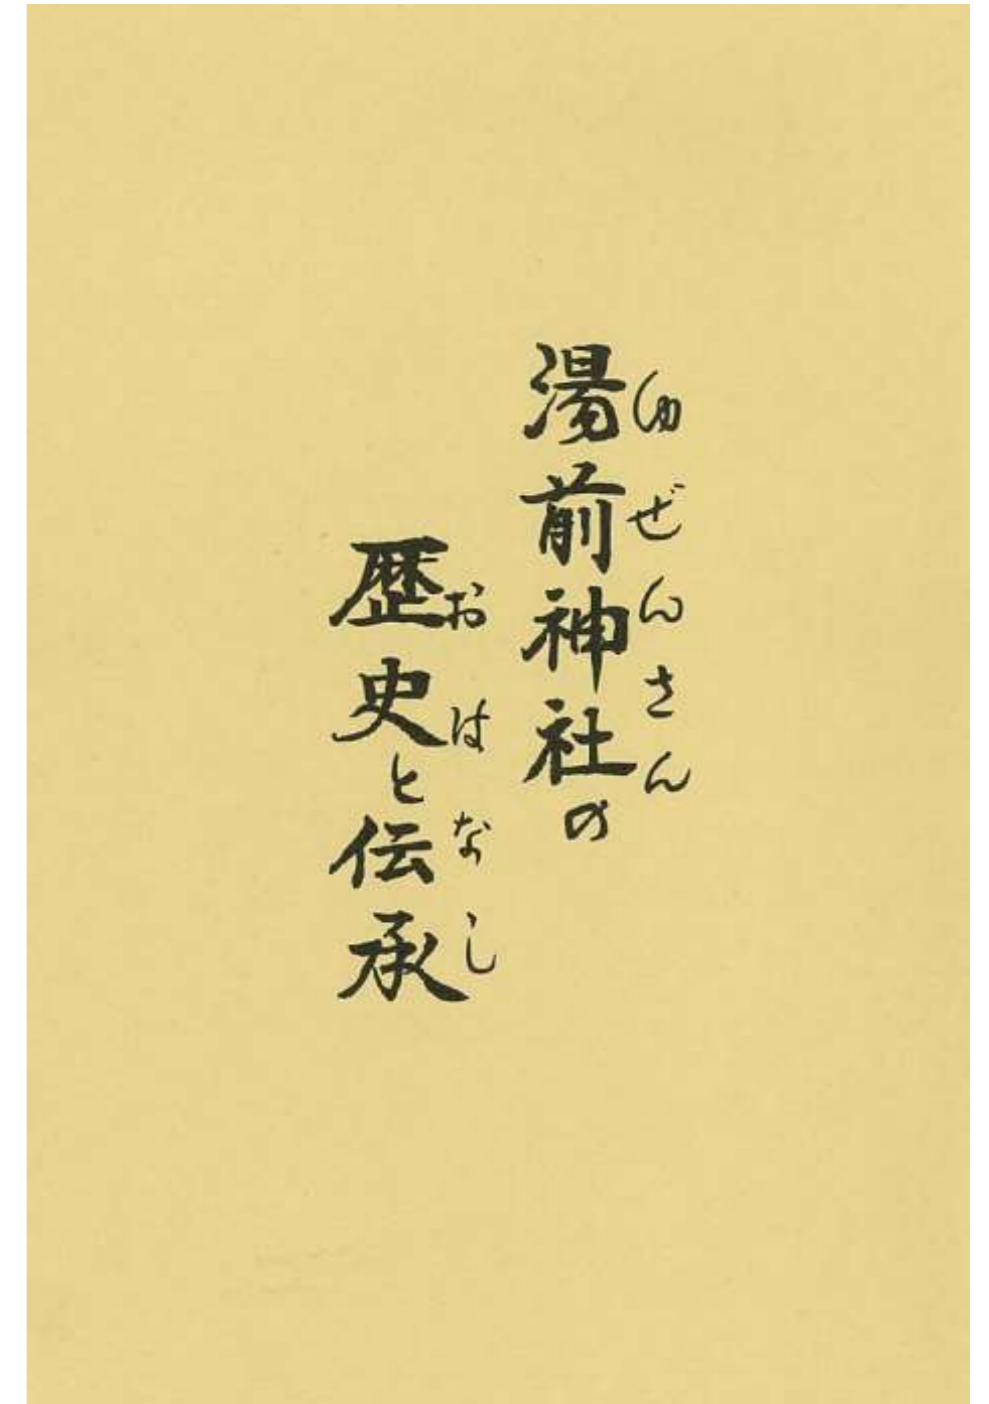 湯前神社の
ゆぜんさん
歴史と伝承
おはなし